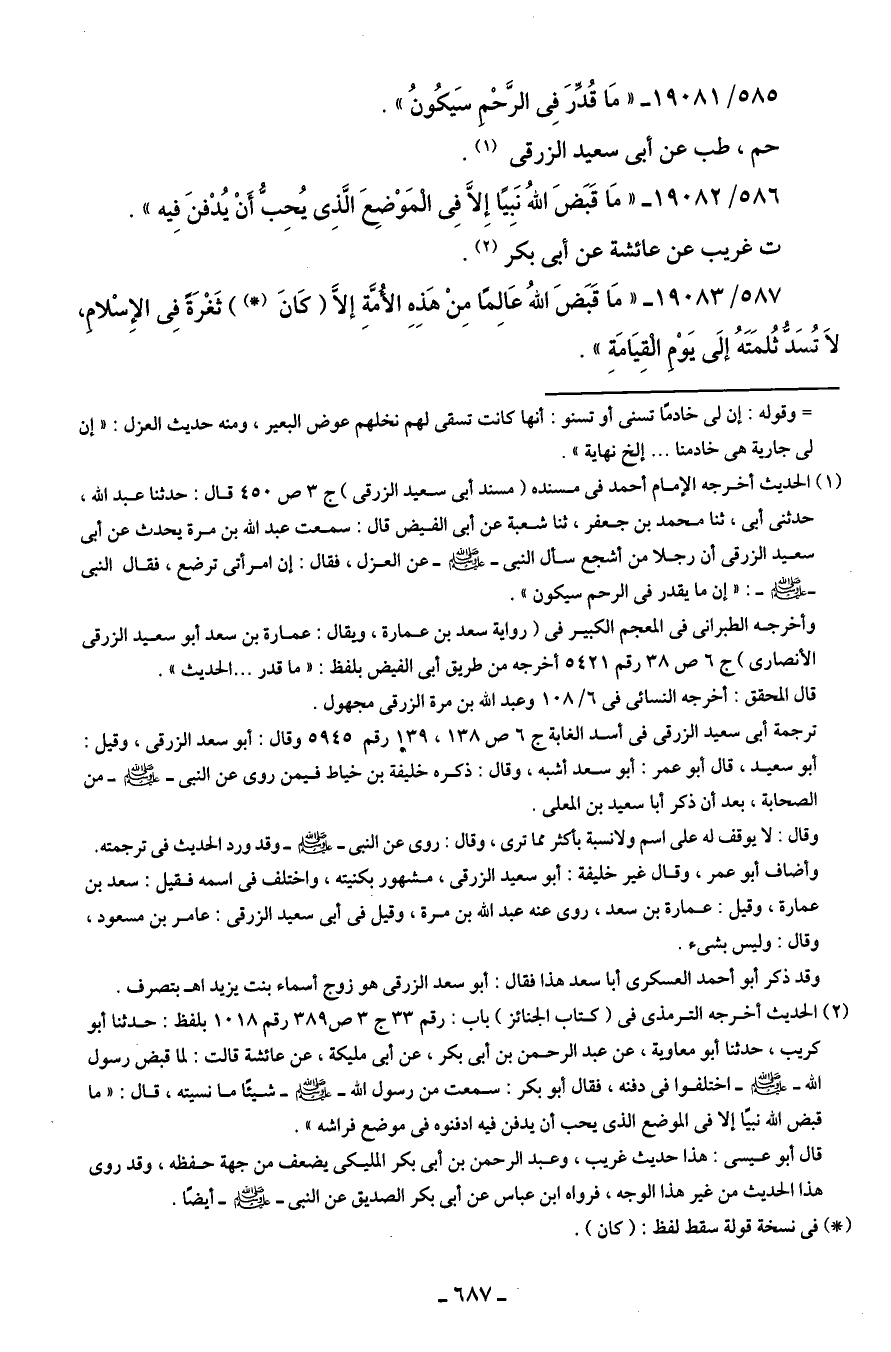 ٥٨٥/ ١٩٠٨١ـ « مَا قُدِّرَ فِى الرَّحْمِ سَيَكُونُ » .
حم ، طب عن أبى سعيد الزرقى (١) .
٥٨٦/ ١٩٠٨٢ـ « مَا قَبَضَ اللهُ نَبِيًا إِلاَّ فِى الْمَوْضِعَ الَّذِى يُحِبُّ أَنْ يُدْفنَ فِيه » .
ت غريب عن عائشة عن أبى بكر (٢) .
٥٨٧/ ١٩٠٨٣ـ « مَا قَبَضَ اللهُ عَالِمًا مِنْ هَذِهِ الأُمَّةِ إلاَّ ( كَانَ (*) ) ثَغْرَةً فِى الإِسْلامِ،
لاَ تُسَدُّ ثُلمَتَهُ إِلَى يَوْمِ الْقِيَامَةِ » .
= وقوله : إن لى خادمًا تسنى أو تسنو : أنها كانت تسقى لهم نخلهم عوض البعير ، ومنه حديث العزل : « إن
لى جارية هى خادمنا ... إلخ نهاية » .
(١) الحديث أخرجه الإمام أحمد فى مسنده ( مسند أبى سعيد الزرقى ) ج ٣ ص ٤٥٠ قال : حدثنا عبد الله ،
حدثنى أبى ، ثنا محمد بن جعفر ، ثنا شعبة عن أبى الفيض قال : سمعت عبد الله بن مرة يحدث عن أبى
سعيد الزرقى أن رجلا من أشجع سأل النبى ـ ﷺ ـ عن العزل ، فقال : إن امرأتى ترضع ، فقال النبى
ـ ﷺ ـ : « إن ما يقدر فى الرحم سيكون » .
وأخرجه الطبرانى فى المعجم الكبير فى ( رواية سعد بن عمارة ، ويقال : عمارة بن سعد أبو سعيد الزرقى
الأنصارى ) ج ٦ ص ٣٨ رقم ٥٤٢١ أخرجه من طريق أبى الفيض بلفظ : « ما قدر ...الحديث » .
قال المحقق : أخرجه النسائى فى ٦/ ١٠٨ وعبد الله بن مرة الزرقى مجهول .
ترجمة أبى سعيد الزرقى فى أسد الغابة ج ٦ ص ١٣٨ ، ١٣٩ رقم ٥٩٤٥ وقال : أبو سعد الزرقى ، وقيل :
أبو سعيد ، قال أبو عمر : أبو سعد أشبه ، وقال : ذكره خليفة بن خياط فيمن روى عن النبى ـ ﷺ ـ من
الصحابة ، بعد أن ذكر أبا سعيد بن المعلى .
وقال : لا يوقف له على اسم ولانسبة بأكثر مما ترى ، وقال : روى عن النبى ـ ﷺ ـ وقد ورد الحديث فى ترجمته.
وأضاف أبو عمر ، وقال غير خليفة : أبو سعيد الزرقى ، مشهور بكنيته ، واختلف فى اسمه فقيل : سعد بن
عمارة ، وقيل : عمارة بن سعد ، روى عنه عبد الله بن مرة ، وقيل فى أبى سعيد الزرقى : عامر بن مسعود ،
وقال : وليس بشىء .
وقد ذكر أبو أحمد العسكرى أبا سعد هذا فقال : أبو سعد الزرقى هو زوج أسماء بنت يزيد اهـ بتصرف .
(٢) الحديث أخرجه الترمذى فى ( كتاب الجنائز ) باب : رقم ٣٣ ج ٣ ص٣٨٩ رقم ١٠١٨ بلفظ : حدثنا أبو
كريب ، حدثنا أبو معاوية ، عن عبد الرحمن بن أبى بكر ، عن أبى مليكة ، عن عائشة قالت : لما قبض رسول
الله ـ ﷺ ـ اختلفوا فى دفنه ، فقال أبو بكر : سمعت من رسول الله ـ ﷺ ـ شيئًا ما نسيته ، قال : « ما
قبض الله نبيًا إلا فى الموضع الذى يحب أن يدفن فيه ادفنوه فى موضع فراشه » .
قال أبو عيسى : هذا حديث غريب ، وعبد الرحمن بن أبى بكر المليكى يضعف من جهة حفظه ، وقد روى
هذا الحديث من غير هذا الوجه ، فرواه ابن عباس عن أبى بكر الصديق عن النبى ـ ﷺ ـ أيضًا .
(*) فى نسخة قولة سقط لفظ : ( كان ) .
ـ ٦٨٧ ـ